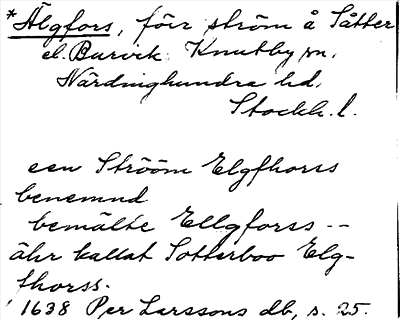 *Älgfors, förr ström å Sätter
el. Burvik Knutby sn.
Närdinghundra hd.
Stockh. l.
een Strööm Elgfhorss
benemnd
bemälte Ellgforss --
ähr kallat Sotterboo Elg-
fhorss.
1638 Per Larssons db, s. 25.